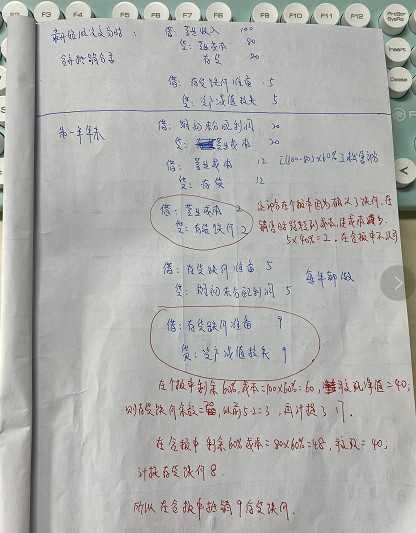 F2 F3 F4 F5 F6 F7 F8 F9 F10 F11 F12 PrtScr SysRq
Insert
Delete
借：营业收入 100
贷：营业成本 80
合并抵销分录 存货 20
借：存货跌价准备 5
贷：资产减值损失 5
第一年年末 借：期初未分配利润 20
贷：营业成本 20
借：营业成本 12 [(100-80)×60%]
贷：存货 12
借：营业成本 2
贷：存货跌价 2
销售时结转到成本，使成本减少
5×40%=2，在合报中不认可
借：存货跌价准备 5 每年都做
贷：期初未分配利润 5
借：存货跌价准备 9
贷：资产减值损失 9
在个报中剩余60%，成本=100×60%=60，可变现净值=40，
则存货跌价余数=20，以前5-2=3，再计提了17。
在合报中剩余60%，成本=80×60%=48，可变现=40，
计提存货跌价8.
所以在合报中抵销9存货跌价.